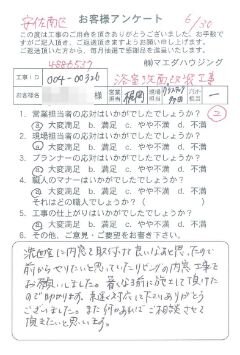 安佐南区 お客様アンケート 6/30
この度は工事のご用命を頂きありがとうございました。お手数で
すがご記入頂き、ご返送頂きますようお願い申し上げます。
ご返送頂いた方から、毎月抽選で感謝品を送ります。
㈱マエダハウジング
工事ID 004-00326 浴室洗面改装工事
お客様名 様 営業担当 現場担当
1. 営業担当者の応対はいかがでしたでしょうか?
ⓐ大変満足 b. 満足 c. やや不満 d. 不満
2. 現場担当者の応対はいかがでしたでしょうか?
ⓐ大変満足 b. 満足 c. やや不満 d. 不満
3. プランナーの応対はいかがでしたでしょうか?
a. 大変満足 b. 満足 c. やや不満 d. 不満
4. 職人のマナーはいかがでしたでしょうか?
ⓐ大変満足 b. 満足 c. やや不満 d. 不満
それはどの職人でしょうか?( )
5. 工事の仕上がりはいかがでしたでしょうか?
ⓐ大変満足 b. 満足 c. やや不満 d. 不満
6. その他、ご意見・ご要望をお書き下さい。
洗面室に内窓を取付けて良いなあと思ったので
前からやりたいと思っていたリビングの内窓工事を
お願いしました。暑くなる前に施工して頂けた
ので助かります。迅速な対応に下さりありがとう
ございました。また何かあればご相談させて
頂きたいと思います。